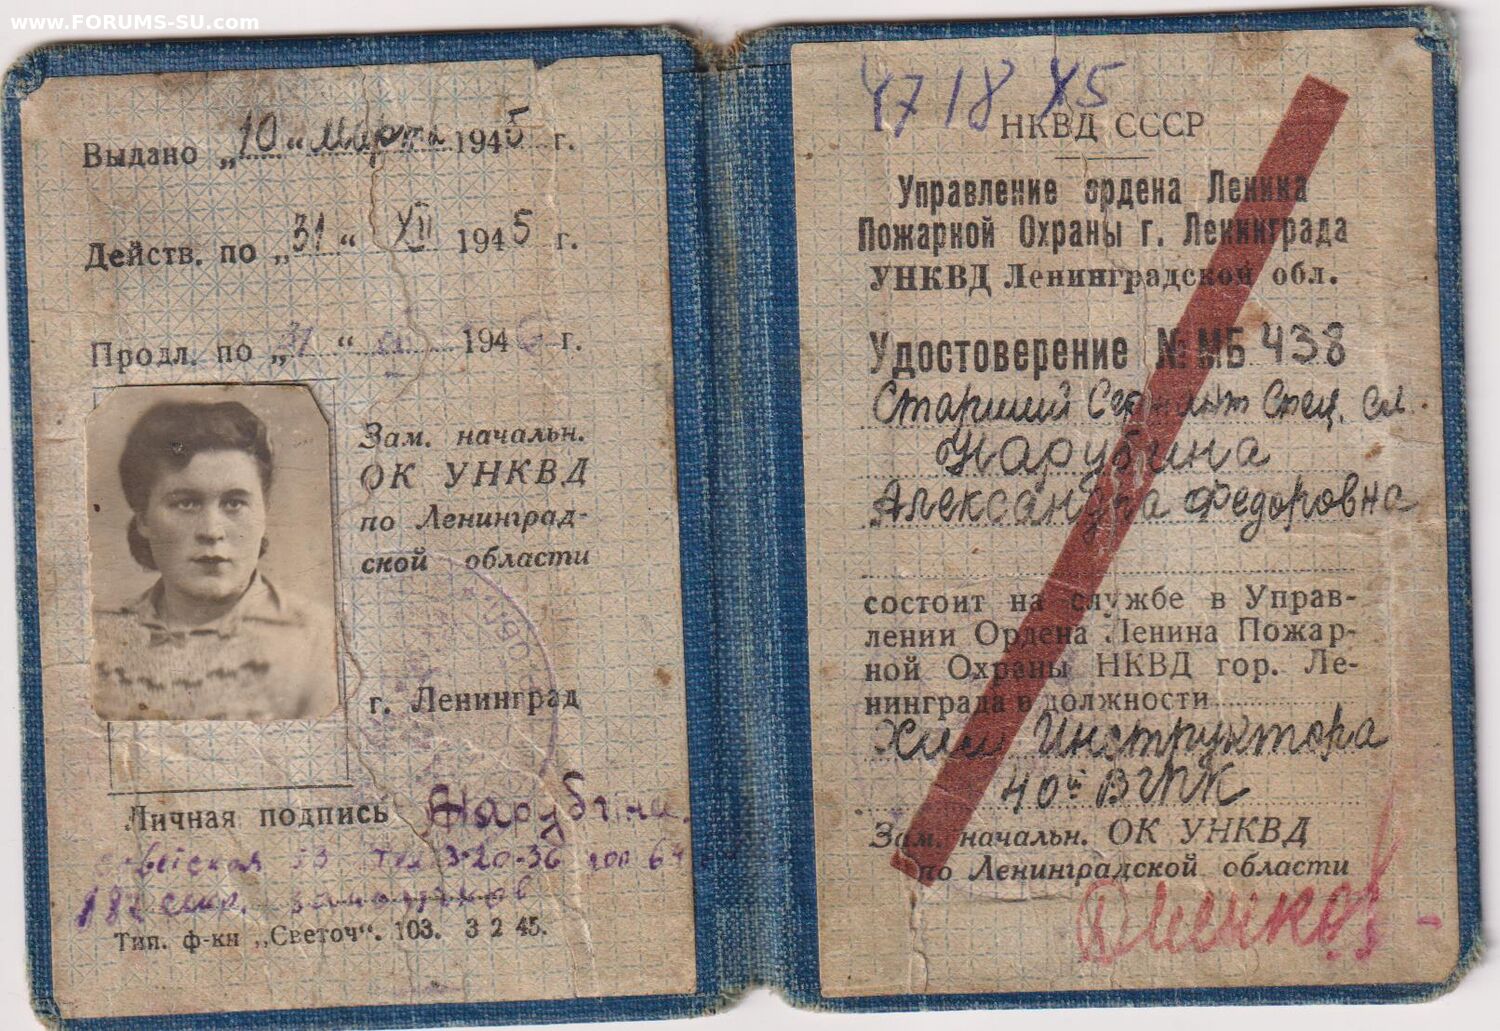 www.FORUMS-SU.com
Выдано „10“ Марта 1945 г.
Действ. по „31“ XII 1945 г.
Продл. по „31“ XII 1946 г.
Зам. начальн.
ОК УНКВД
по Ленинград-
ской области
г. Ленинград
Личная подпись Нарубина
53 3-20-36 64
182
Тип. ф-ки „Светоч“. 103. 3 2 45.
4718 45
НКВД СССР
Управление ордена Ленина
Пожарной Охраны г. Ленинграда
УНКВД Ленинградской обл.
Удостоверение № МБ 438
Старший Сержант Спец. сл.
Нарубина
Александра Федоровна
состоит на службе в Управ-
лении Ордена Ленина Пожар-
ной Охраны НКВД гор. Ле-
нинграда в должности
Хим Инструктора
40й ВГПК
Зам. начальн. ОК УНКВД
по Ленинградской области